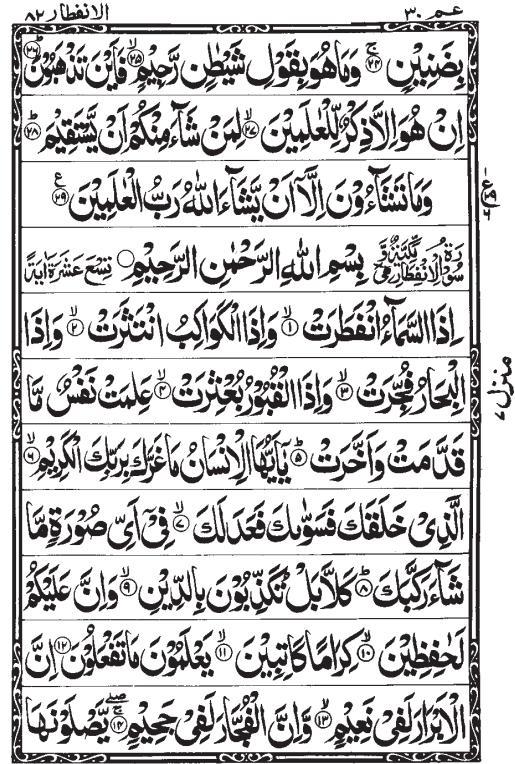 عم ٣٠
الانفطار ٨٢
بِضَنِيْنٍ ۚ ﴿۲۴﴾ وَمَا هُوَ بِقَوْلِ شَيْطٰنٍ رَّجِيْمٍ ۙ ﴿۲۵﴾ فَاَيْنَ تَذْهَبُوْنَ ؕ ﴿۲۶﴾
اِنْ هُوَ اِلَّا ذِكْرٌ لِّلْعٰلَمِيْنَ ۙ ﴿۲۷﴾ لِمَنْ شَآءَ مِنْكُمْ اَنْ يَّسْتَقِيْمَ ؕ ﴿۲۸﴾
وَمَا تَشَآءُوْنَ اِلَّاۤ اَنْ يَّشَآءَ اللّٰهُ رَبُّ الْعٰلَمِيْنَ ﴿۲۹﴾ ع
سُوْرَةُ الْاِنْفِطَارِ مَكِّيَّةٌ وَّهِيَ بِسْمِ اللّٰهِ الرَّحْمٰنِ الرَّحِيْمِ تِسْعَ عَشْرَةَ اٰيَةً
اِذَا السَّمَآءُ انْفَطَرَتْ ۙ ﴿۱﴾ وَاِذَا الْكَوَاكِبُ انْتَثَرَتْ ۙ ﴿۲﴾ وَاِذَا
الْبِحَارُ فُجِّرَتْ ۙ ﴿۳﴾ وَاِذَا الْقُبُوْرُ بُعْثِرَتْ ۙ ﴿۴﴾ عَلِمَتْ نَفْسٌ مَّا
قَدَّمَتْ وَاَخَّرَتْ ؕ ﴿۵﴾ يٰۤاَيُّهَا الْاِنْسَانُ مَا غَرَّكَ بِرَبِّكَ الْكَرِيْمِ ۙ ﴿۶﴾
الَّذِيْ خَلَقَكَ فَسَوّٰىكَ فَعَدَلَكَ ۙ ﴿۷﴾ فِيْۤ اَيِّ صُوْرَةٍ مَّا
شَآءَ رَكَّبَكَ ؕ ﴿۸﴾ كَلَّا بَلْ تُكَذِّبُوْنَ بِالدِّيْنِ ۙ ﴿۹﴾ وَاِنَّ عَلَيْكُمْ
لَحٰفِظِيْنَ ۙ ﴿۱۰﴾ كِرَامًا كَاتِبِيْنَ ۙ ﴿۱۱﴾ يَعْلَمُوْنَ مَا تَفْعَلُوْنَ ﴿۱۲﴾ اِنَّ
الْاَبْرَارَ لَفِيْ نَعِيْمٍ ۙ ﴿۱۳﴾ وَّاِنَّ الْفُجَّارَ لَفِيْ جَحِيْمٍ ۚ ۖ ﴿۱۴﴾ يَّصْلَوْنَهَا
منزل ۷